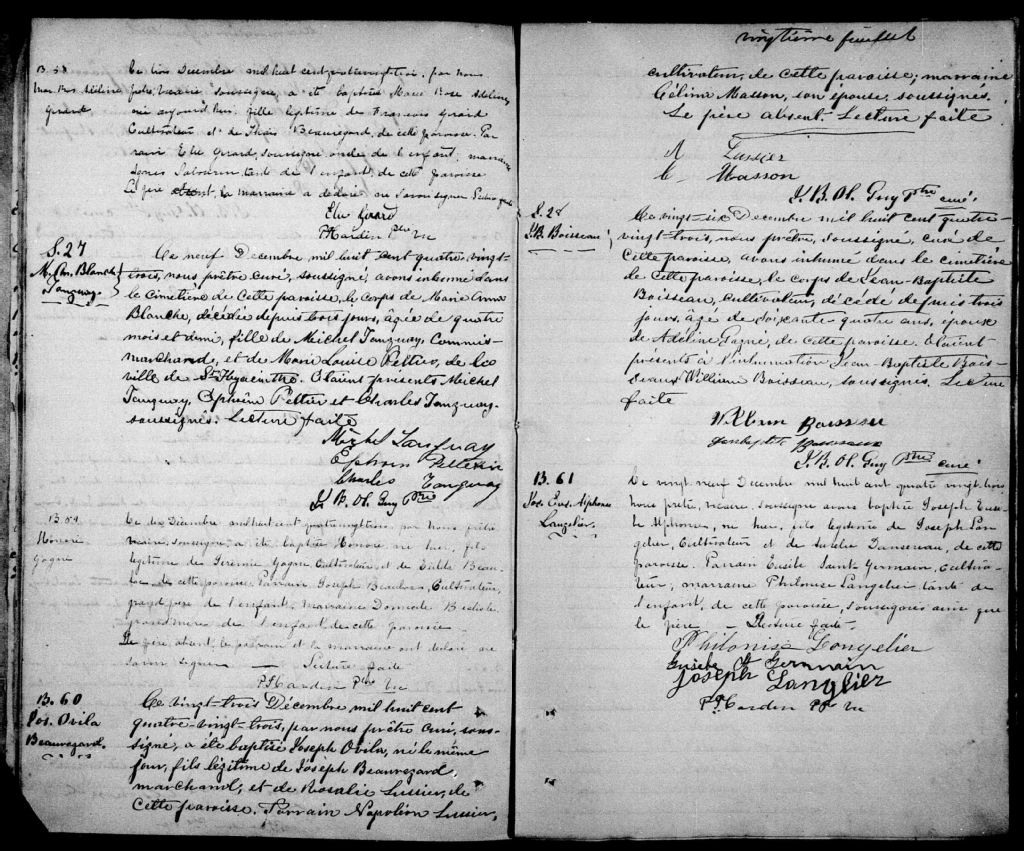 B. 58
Ce trois Décembre mil huit cent quatre vingt trois, par nous
prêtre, vicaire soussigné, a été baptisée Marie Rose Adelina,
née aujourd'hui, fille légitime de François Girard
Cultivateur et de Beauregard, de cette paroisse. Par
rain Elie Girard, soussigné oncle de l'enfant, marraine
tante de l'enfant, de cette paroisse
Le père absent, la marraine a déclaré ne savoir signer. Lecture faite
Elie Girard
P. Hardin Ptre Vic
S. 27
M. Ann. Blanche
Tanguay
Ce neuf Decembre mil huit cent quatre-vingt-
trois, nous prêtre curé, soussigné, avons inhumé dans
le cimetière de cette paroisse, le corps de Marie Anne
Blanche, décédée depuis trois jours, âgée de quatre
mois et demi, fille de Michel Tanguay Commis-
marchand, et de Marie Louise Peltier, de la
ville de St Hyacinthe. Etaient présents Michel
Tanguay, Ephrèm Peltier et Charles Tanguay
soussignés. Lecture faite
Michel Tanguay
Ephrem Pelletier
Charles Tanguay
J. B. O. Guy Ptre
B 59
Honoré
Gagné
Ce Décembre mil huit cent quatre vingt trois par nous prêtre
vicaire, soussigné a été baptisé Honoré né hier, fils
légitime de Jérémie Gagné Cultivateur et de
de cette paroisse Parrain Joseph Cultivateur,
grand père de l'enfant, Marraine
grand'mère de l'enfant, de cette paroisse.
Le père, absent, le parrain et la marraine ont déclaré ne
savoir signer — Lecture faite
P. Hardin Ptre Vic
B. 60
Jos. Ovila
Beauregard.
Ce vingt-trois Décembre mil huit cent
quatre-vingt-trois, par nous prêtre curé, sous-
signé, a été baptisé Joseph Ovila, né le même
jour, fils légitime de Joseph Beauregard
marchand, et de Rosalie Lussier, de
cette paroisse. Parrain Napoléon Lussier,
vingtième feuillet
cultivateur, de cette paroisse; marraine
Célina Masson, son épouse, soussignés.
Le père absent. Lecture faite
N Lussier
C Masson
J. B. O. Guy Ptre curé
S. 28
J. B. Boisseau
Ce vingt-six Décembre mil huit cent quatre-
vingt-trois, nous prêtre, soussigné, curé de
cette paroisse, avons inhumé dans le cimetière
de cette paroisse, le corps de Jean-Baptiste
Boisseau, cultivateur, décédé depuis trois
jours, âgé de soixante-quatre ans, époux
de Adéline Gagné, de cette paroisse. Etaient
présents à l'inhumation Jean-Baptiste Bois-
seau William Boisseau, soussignés. Lecture
faite
William Boisseau
Jeanbaptiste Boisseau
J. B. O. Guy Ptre curé
B. 61
Jos. Eus. Alphonse
Langelier.
Ce vingt neuf Décembre mil huit cent quatre vingt trois
nous prêtre, vicaire, soussigné avons baptisé Joseph Eusèbe
Alphonse, né hier, fils légitime de Joseph Lan
gelier, Cultivateur et de Aurélie Dansereau, de cette
paroisse. Parrain Eusèbe Saint Germain, Cultiva-
teur, marraine Philomise Langelier tante de
l'enfant, de cette paroisse, soussignés ainsi que
le père — Lecture faite.
Philomise Langelier
Eusèbe St Germain
Joseph Langelier
P. Hardin Ptre Vic